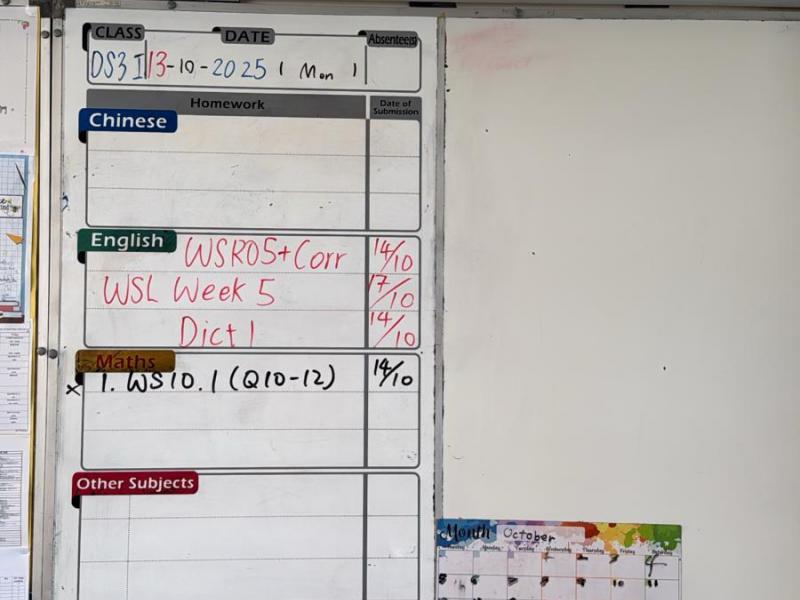 CLASS DATE Absentee(s)
DS3 I 13-10-2025 ( Mon )
Homework Date of Submission
Chinese
English WSR05+Corr 14/10
WSL Week 5 17/10
Dict 1 14/10
Maths
x 1. WS10.1 (Q10-12) 14/10
Other Subjects
Month October